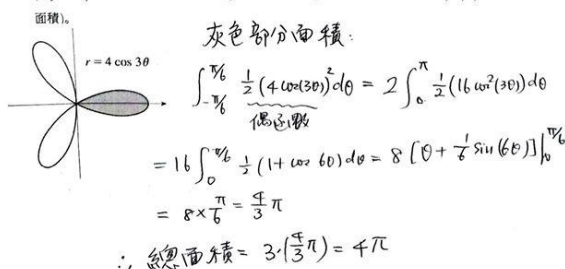 面積)。
灰色部分面積:
r = 4 cos 3θ
∫_{-π/6}^{π/6} 1/2 (4 cos(3θ))² dθ = 2 ∫_0^π 1/2 (16 cos²(3θ)) dθ
偶函數
= 16 ∫_0^{π/6} 1/2 (1 + cos 6θ) dθ = 8 [θ + 1/6 sin(6θ)] |_0^{π/6}
= 8 × π/6 = 4/3 π
∴ 總面積 = 3·(4/3 π) = 4π